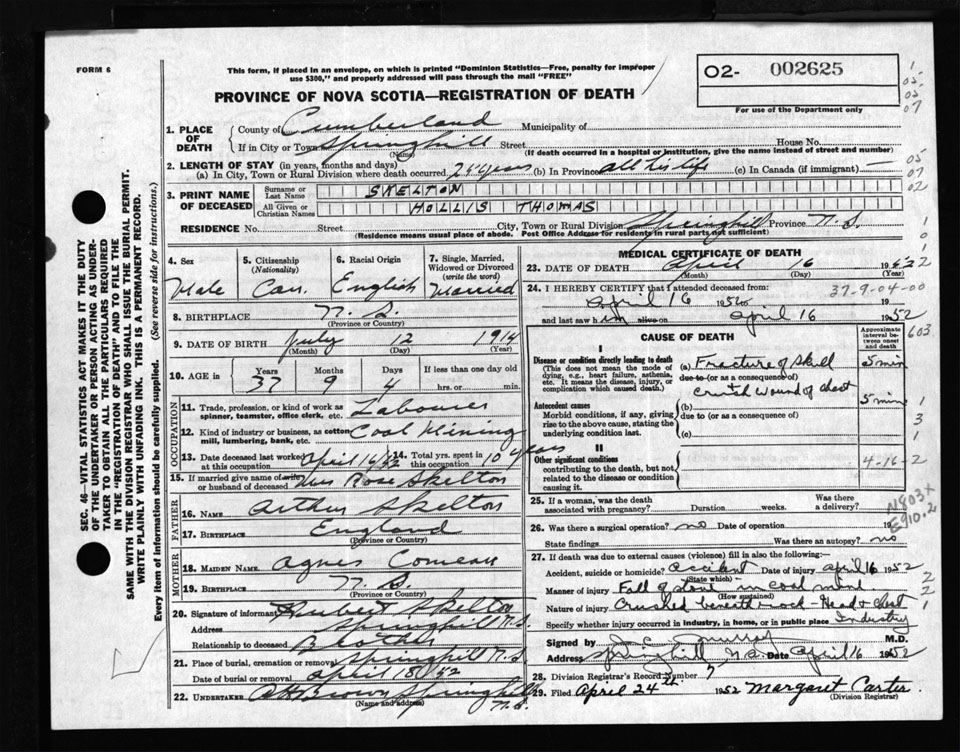 FORM 6
This form, if placed in an envelope, on which is printed "Dominion Statistics—Free, penalty for improper
use $300," and properly addressed will pass through the mail "FREE"
O2- 002625
For use of the Department only
PROVINCE OF NOVA SCOTIA—REGISTRATION OF DEATH
1. PLACE OF DEATH
County of Cumberland Municipality of
If in City or Town Springhill Street House No.
(Name) (If death occurred in a hospital or institution, give the name instead of street and number)
2. LENGTH OF STAY (in years, months and days)
(a) In City, Town or Rural Division where death occurred (b) In Province all his life (c) In Canada (if immigrant)
3. PRINT NAME OF DECEASED
Surname or Last Name SKELTON
All Given or Christian Names HOLLIS THOMAS
RESIDENCE No. Street City, Town or Rural Division Springhill Province N.S.
(Residence means usual place of abode. Post Office Address for residents in rural parts not sufficient)
4. Sex Male
5. Citizenship (Nationality) Can.
6. Racial Origin English
7. Single, Married, Widowed or Divorced (write the word) Married
8. BIRTHPLACE N.S.
(Province or Country)
9. DATE OF BIRTH July 12 1914
(Month) (Day) (Year)
10. AGE in Years 37 Months 9 Days 4 If less than one day old hrs. or min.
OCCUPATION
11. Trade, profession, or kind of work as spinner, teamster, office clerk, etc. Labourer
12. Kind of industry or business, as cotton mill, lumbering, bank, etc. Coal Mining
13. Date deceased last worked at this occupation April 16/52
14. Total yrs. spent in this occupation 10 years
15. If married give name of wife or husband of deceased Mrs Rose Skelton
FATHER
16. NAME Arthur Skelton
17. BIRTHPLACE England
(Province or Country)
MOTHER
18. MAIDEN NAME Agnes Comeau
19. BIRTHPLACE N.S.
(Province or Country)
20. Signature of informant Hubert Skelton
Address Springhill N.S.
Relationship to deceased Brother
21. Place of burial, cremation or removal Springhill N.S.
Date of burial or removal April 18/52
22. UNDERTAKER A H Brown Springhill N.S.
(Name and address)
MEDICAL CERTIFICATE OF DEATH
23. DATE OF DEATH April 16 1952
(Month) (Day) (Year)
24. I HEREBY CERTIFY that I attended deceased from: 37-9-04-00
April 16 1952
and last saw him alive on April 16 1952
CAUSE OF DEATH
Approximate interval between onset and death
I
Disease or condition directly leading to death
(This does not mean the mode of dying, e.g., heart failure, asthenia, etc. It means the disease, injury, or complication which caused death.)
(a) Fracture of Skull 5 min
due to (or as a consequence of)
Crush wound of chest 5 mins
Antecedent causes
Morbid conditions, if any, giving rise to the above cause, stating the underlying condition last.
(b)
due to (or as a consequence of)
(c)
II
Other significant conditions
contributing to the death, but not related to the disease or condition causing it.
4-16-2
25. If a woman, was the death associated with pregnancy? Duration weeks Was there a delivery?
N803x
E910.2
26. Was there a surgical operation? no Date of operation 19
State findings Was there an autopsy? no
27. If death was due to external causes (violence) fill in also the following:—
Accident, suicide or homicide? accident Date of injury april 16 1952
(State which)
Manner of injury Fall of stone in coal mine
(How sustained)
Nature of injury Crushed beneath rock - Head & chest
Specify whether injury occurred in industry, in home, or in public place Industry
Signed by J C Murray M.D.
Address Springhill N.S. Date April 16 1952
28. Division Registrar's Record Number 7
29. Filed April 24th 1952 Margaret Carter
(Division Registrar)
SEC. 46—VITAL STATISTICS ACT MAKES IT THE DUTY
OF THE UNDERTAKER OR PERSON ACTING AS UNDER-
TAKER TO OBTAIN ALL THE PARTICULARS REQUIRED
IN THE "REGISTRATION OF DEATH" AND TO FILE THE
SAME WITH THE DIVISION REGISTRAR WHO SHALL ISSUE THE BURIAL PERMIT.
WRITE PLAINLY WITH UNFADING INK. THIS IS A PERMANENT RECORD.
Every item of information should be carefully supplied. (See reverse side for instructions.)